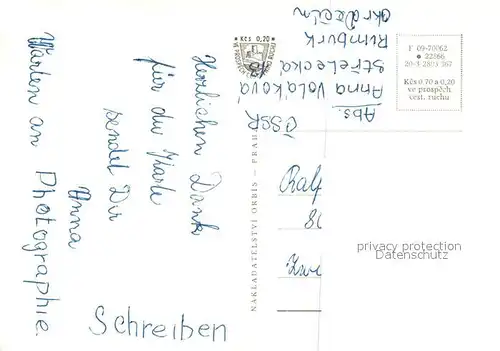 Herzlichen Dank
für die Karte
sendet Dir
Anna
Warten an Photographie.
Schreiben
NAKLADATELSTVÍ ORBIS – PRAH
Kčs 0,20
Abs.
Anna Voláková
Střelecká
Rumburk
okr. Děčín
ČSSR
F 09-70062
22866
Kčs 0.70 a 0,20
ve prospěch
cest. ruchu
Ralf
80
Zwe
privacy protection
Datenschutz